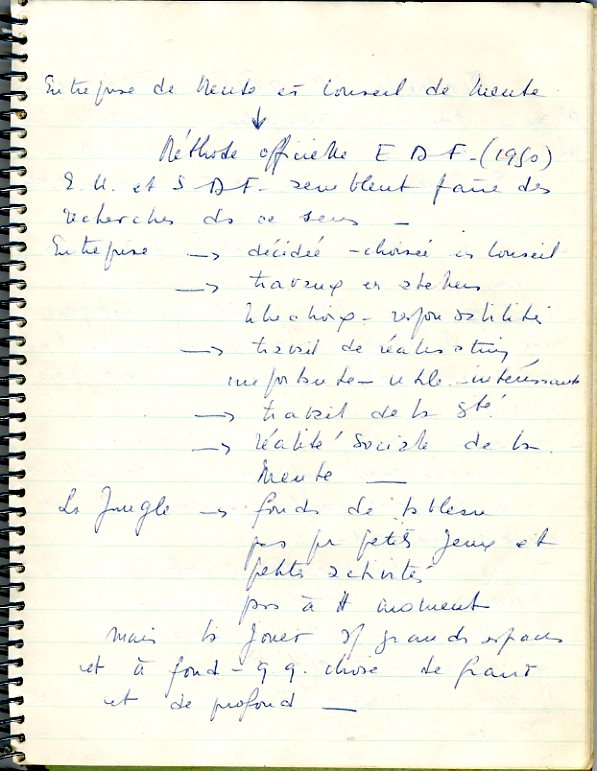 Entreprise de Meute et Conseil de Meute
↓
Méthode officielle E D F - (1950)
E. U. et S D F - semblent faire des
recherches ds ce sens —
Entreprise → décidée - choisie en Conseil
→ travaux en ateliers
- responsabilités
→ travail de réalisation
importante - utile - intéressante
→ travail de la sté
→ réalité sociale de la
Meute —
La Jungle → fonds de tableau
pas pr petits jeux et
petites activités
pas à tt moment
mais la jouer grands espaces
et à fond - q q. chose de grand
et de profond —